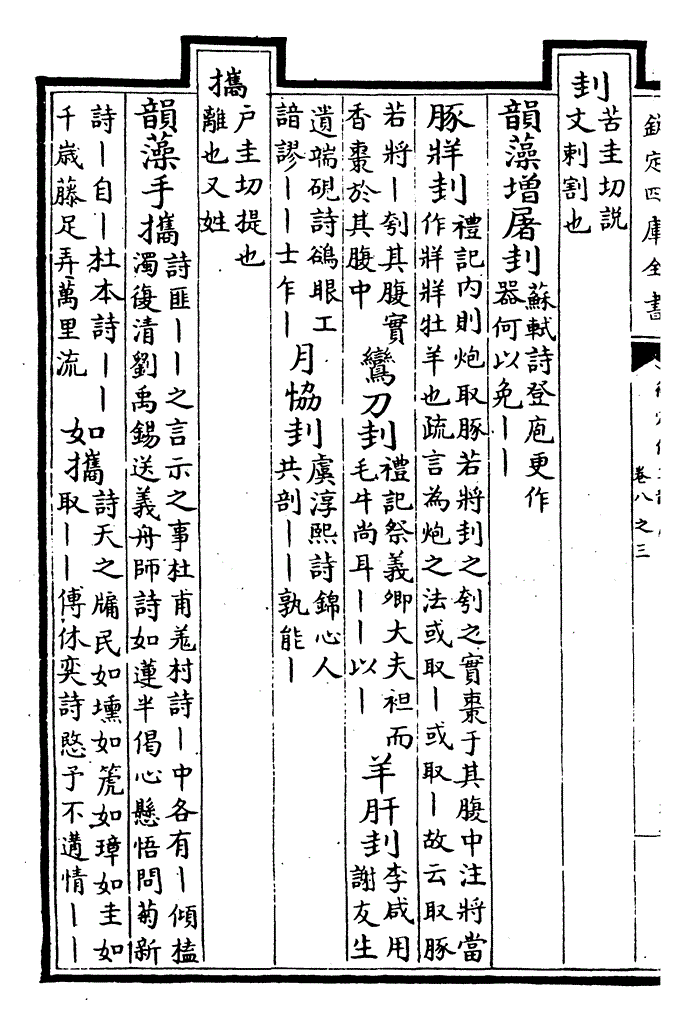 欽定四庫全書
卷八之三
刲
苦圭切説
文刺割也
韻藻增屠刲
蘇軾詩登庖更作
器何以免丨丨
豚牂刲
禮記內則炮取豚若將刲之刳之實棗于其腹中注將當
作牂牂牡羊也疏言為炮之法或取丨或取丨故云取豚
若將丨刳其腹實
香棗於其腹中
鸞刀刲
禮記祭義卿大夫袒而
毛牛尚耳丨丨以丨
羊肝刲
李咸用
謝友生
遺端硯詩鵒眼工
諳謬丨丨士乍丨
月協刲
虞淳熙詩錦心人
共剖丨丨孰能丨
攜
戶圭切提也
離也又姓
韻藻手攜
詩匪丨丨之言示之事杜甫羗村詩丨中各有丨傾榼
濁復清劉禹錫送義舟師詩如蓮半偈心懸悟問菊新
詩丨自丨杜本詩丨丨
千歳藤足弄萬里流
如攜
詩天之牖民如壎如箎如璋如圭如
取丨丨傅休奕詩愍予不遘情丨丨